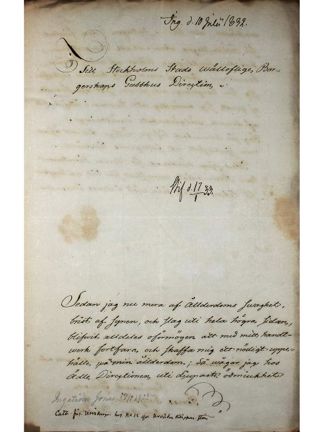 Ing. d. 10 Julii 1832.
Till Stockholms Stads Wällofliga, Bor-
gerskaps Gubbhus Direction,
d. 17/1 33.
Sedan jag nu mera af Ålderdoms Svaghet,
brist af Synen, och Slag uti hela högra Sidan,
blifvit aldeles oförmögen att med mitt handt-
werk fortfara, och skaffa mig ett nödigt uppe-
hälle, på min ålderdom, Så wågar jag hos
Direction, uti djupaste ödmjukhet